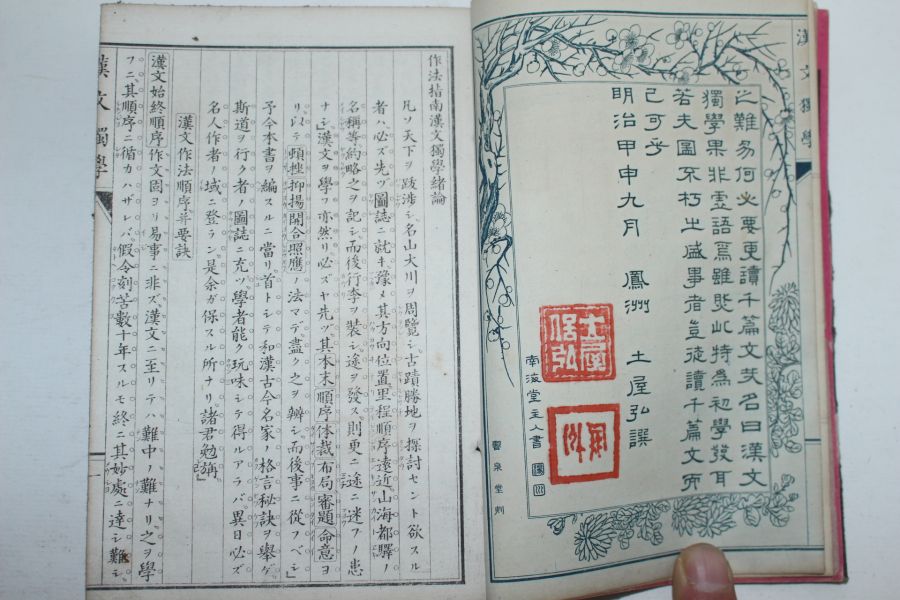 之難易何必要更讀千篇文哉名曰漢文
獨學果非虛語焉雖然此特為初學發耳
若夫圖不朽之盛事者豈徒讀千篇文而
已可乎
明治甲申九月 鳳洲 土屋弘譔
南海堂主人書
土屋弘
漢文獨學
作法指南漢文獨學緒論
凡ソ天下ヲ跋渉シ名山大川ヲ周覽シ古蹟勝地ヲ探討セント欲スル
者ハ必ズ先ヅ圖誌ニ就キ豫メ其方向位置里程順序遠近山海都驛ノ
名稱等約略之ヲ記シ而後行李ヲ裝シ途ヲ發ス則更ニ迷ニ迷フノ患
ナシ漢文ヲ學フ亦然リ必ズヤ先ヅ其本末順序体裁布局審題命意ヨ
リ以テ頓挫抑揚開合照應ノ法マデ盡ク之ヲ辨シ而後事ニ從フベシ
予今本書ヲ編スルニ當リ首トシテ和漢古今名家ノ格言秘訣ヲ舉ゲ
斯道ヲ行ク者ノ圖誌ニ充ツ學者能ク玩味シテ得ルアラバ異日必ズ
名人作者ノ域ニ登ラン是余ガ保スル所ナリ諸君勉旃
漢文作法順序并要訣
漢文始終順序 作文固ヨリ易事ニ非ズ漢文ニ至リテハ難中ノ難ナリ之ヲ學
フニ其順序ニ循カハザレバ假令刻苦數十年スルモ終ニ其妙處ニ達シ難シ
漢文獨學